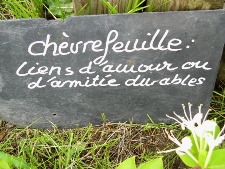 chèvrefeuille :
liens d'amour ou
d'amitié durables